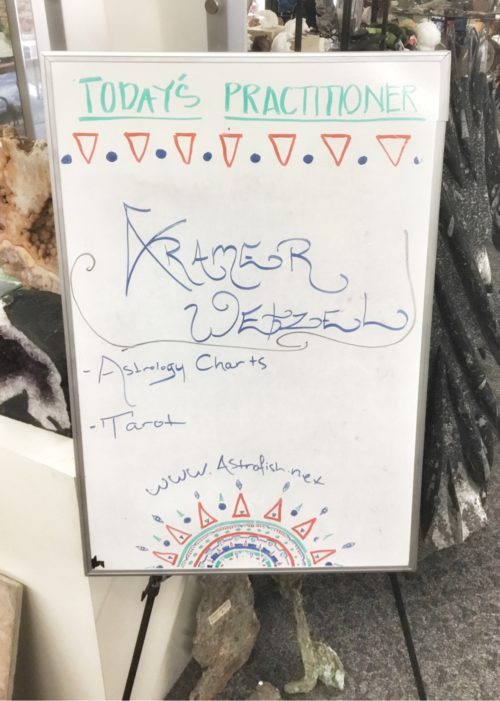 TODAY'S PRACTITIONER
KRAMER
WETZEL
- Astrology Charts
- Tarot
www.Astrofish.net